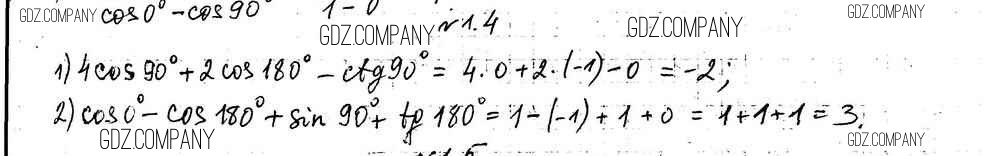 cos 0° - cos 90° 1 - 0
№ 1.4
1) 4 cos 90° + 2 cos 180° - ctg 90° = 4 · 0 + 2 · (-1) - 0 = -2;
2) cos 0° - cos 180° + sin 90° + tg 180° = 1 - (-1) + 1 + 0 = 1 + 1 + 1 = 3.
GDZ.COMPANY
GDZ.COMPANY
GDZ.COMPANY
GDZ.COMPANY
GDZ.COMPANY
GDZ.COMPANY